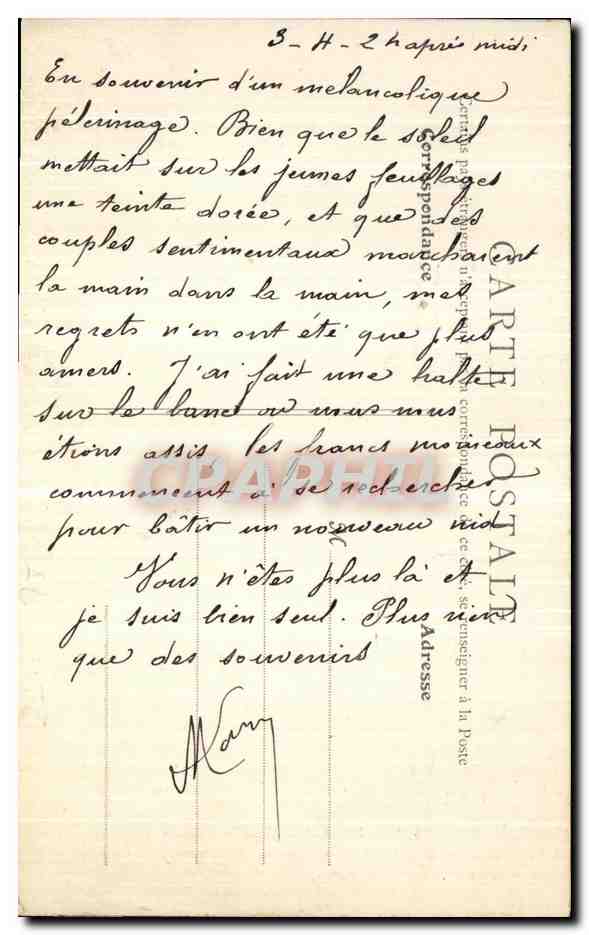 3 - 4 - 2 h après midi
En souvenir d'un mélancolique
pélerinage. Bien que le soleil
mettait sur les jeunes feuillages
une teinte dorée, et que des
couples sentimentaux marchaient
la main dans la main, mes
regrets n'en ont été que plus
amers. J'ai fait une halte
sur le banc ou nous nous
étions assis les francs moineaux
commencent à se rechercher
pour bâtir un nouveau nid
Vous n'êtes plus là et
je suis bien seul. Plus rien
que des souvenirs
CARTE POSTALE
Certains pays étrangers n'acceptent pas la correspondance de ce côté, se renseigner à la Poste
Correspondance
Adresse
CPAPHIL